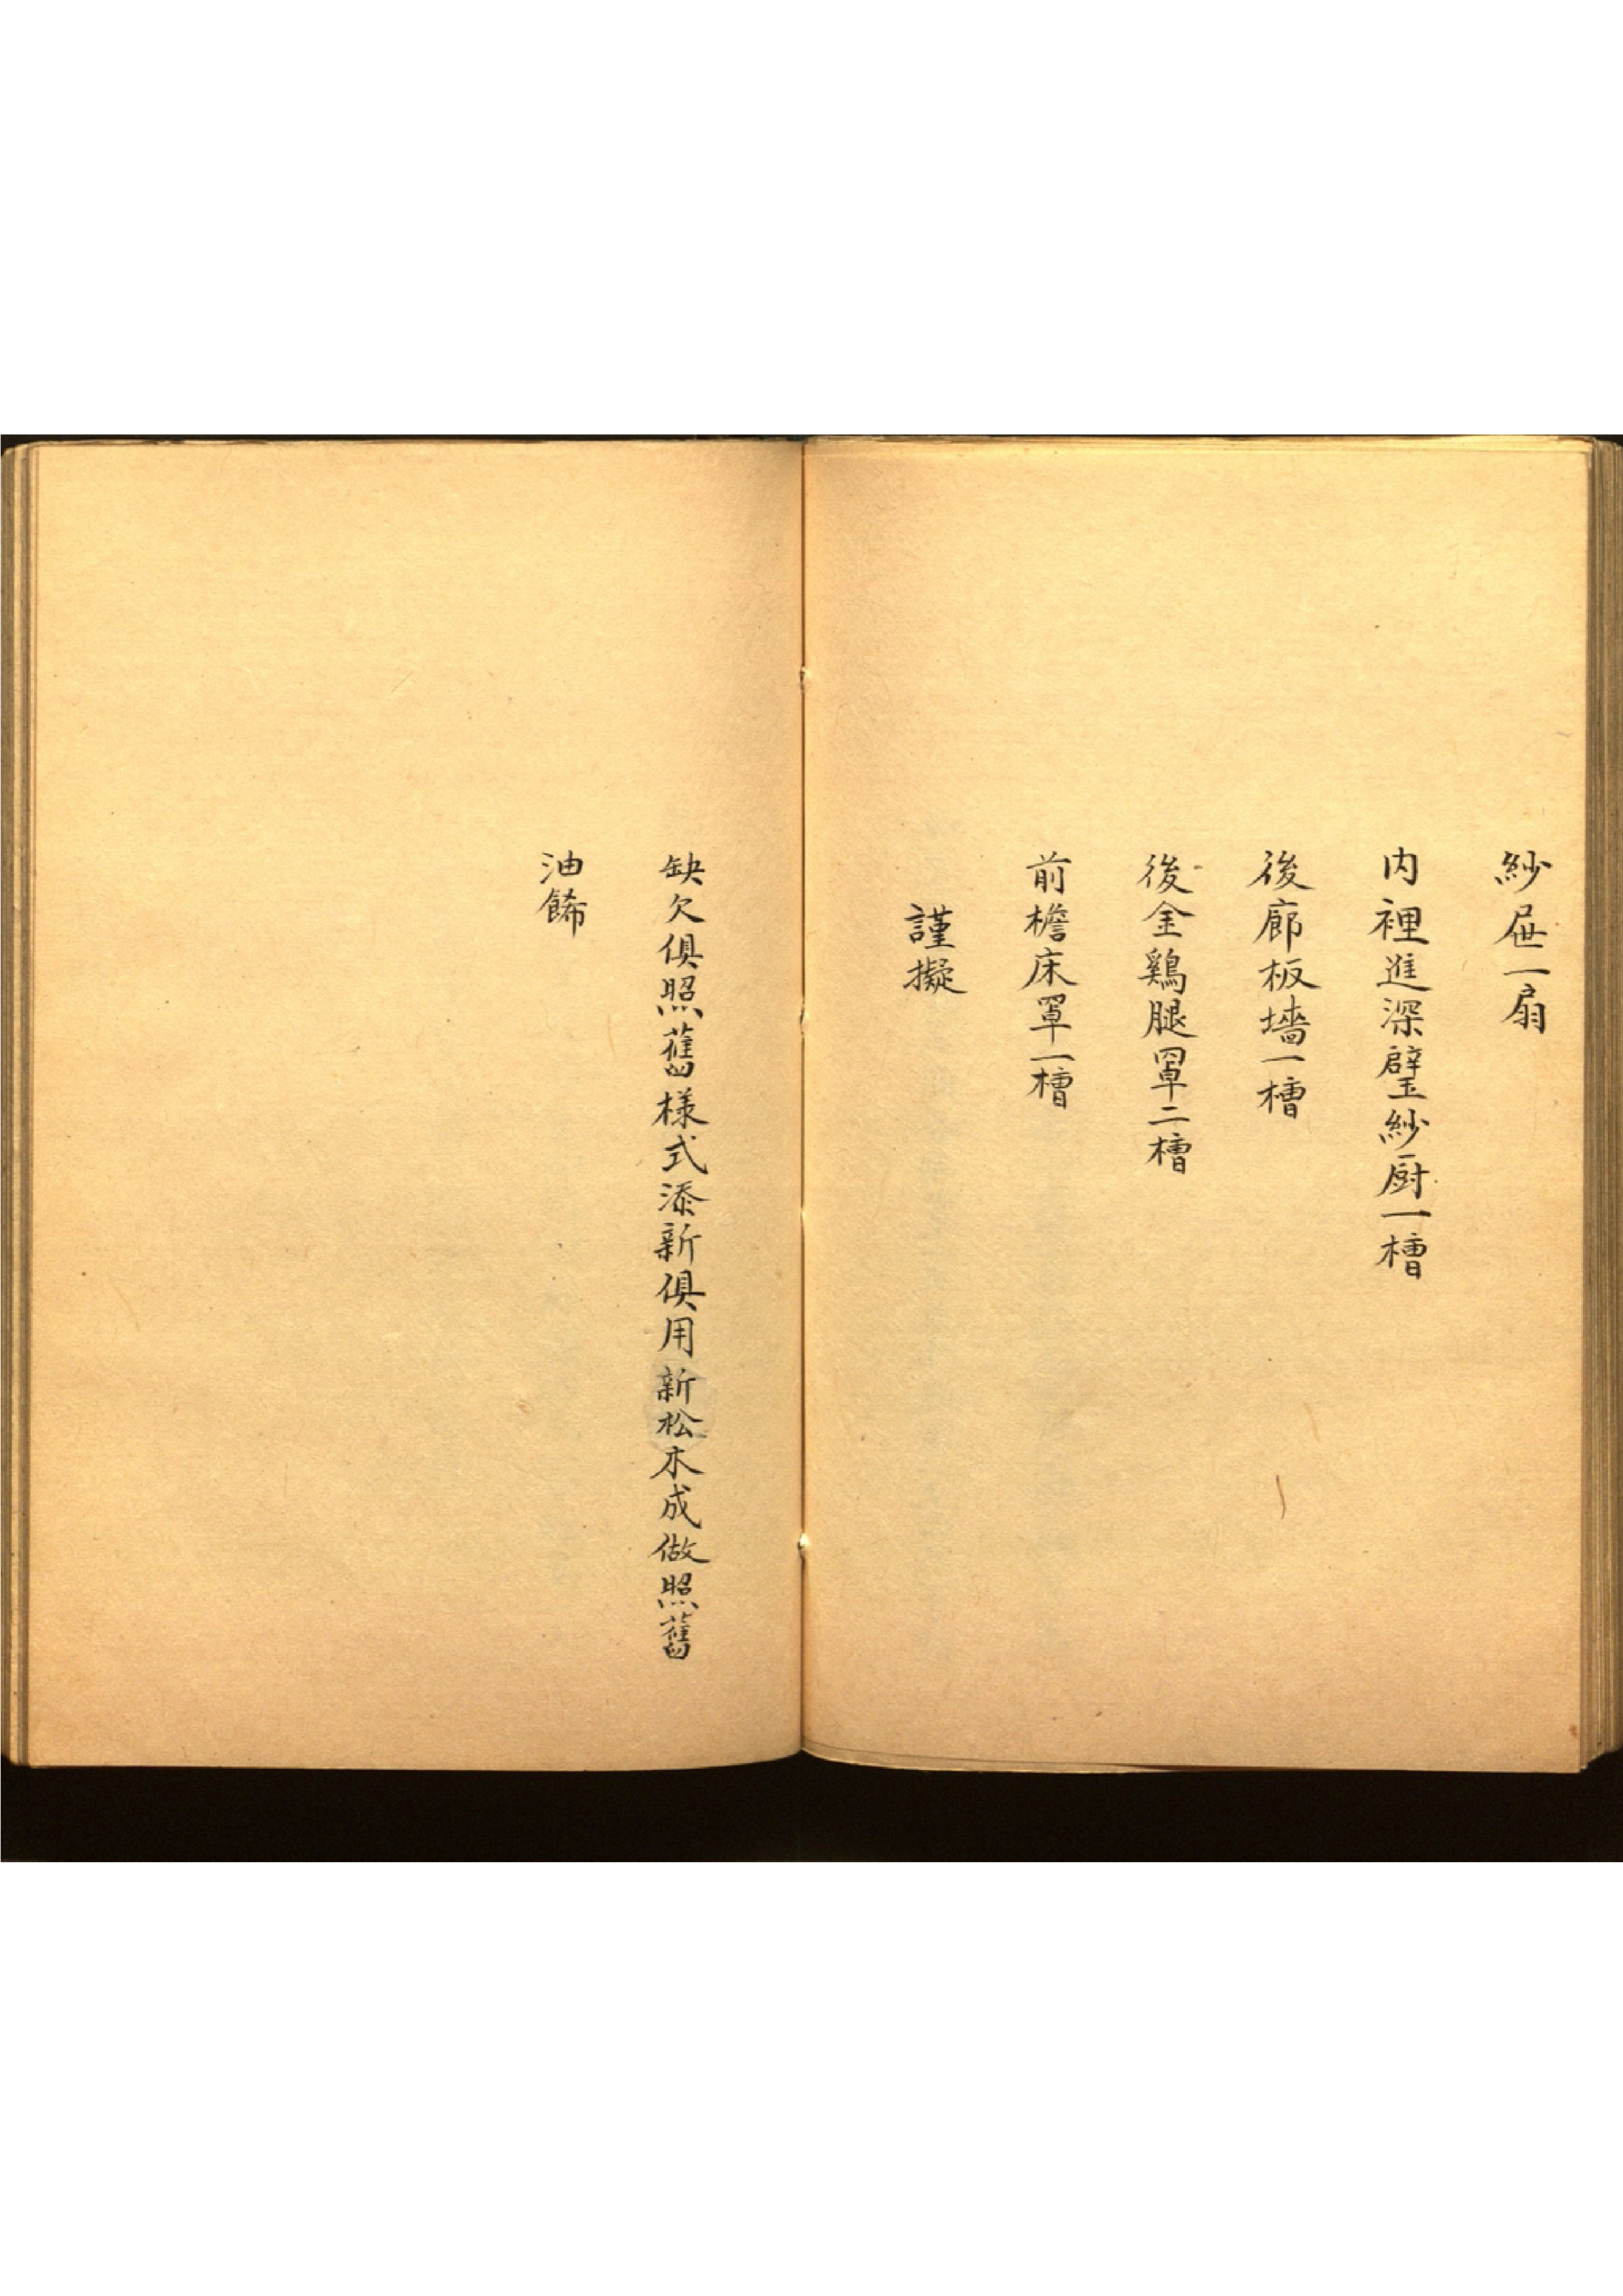 紗屉一扇
内裡進深璧紗厨一槽
後廊板墻一槽
後金鷄腿罩二槽
前檐床罩一槽
謹擬
缺欠俱照舊樣式添新俱用新松木成做照舊
油餙